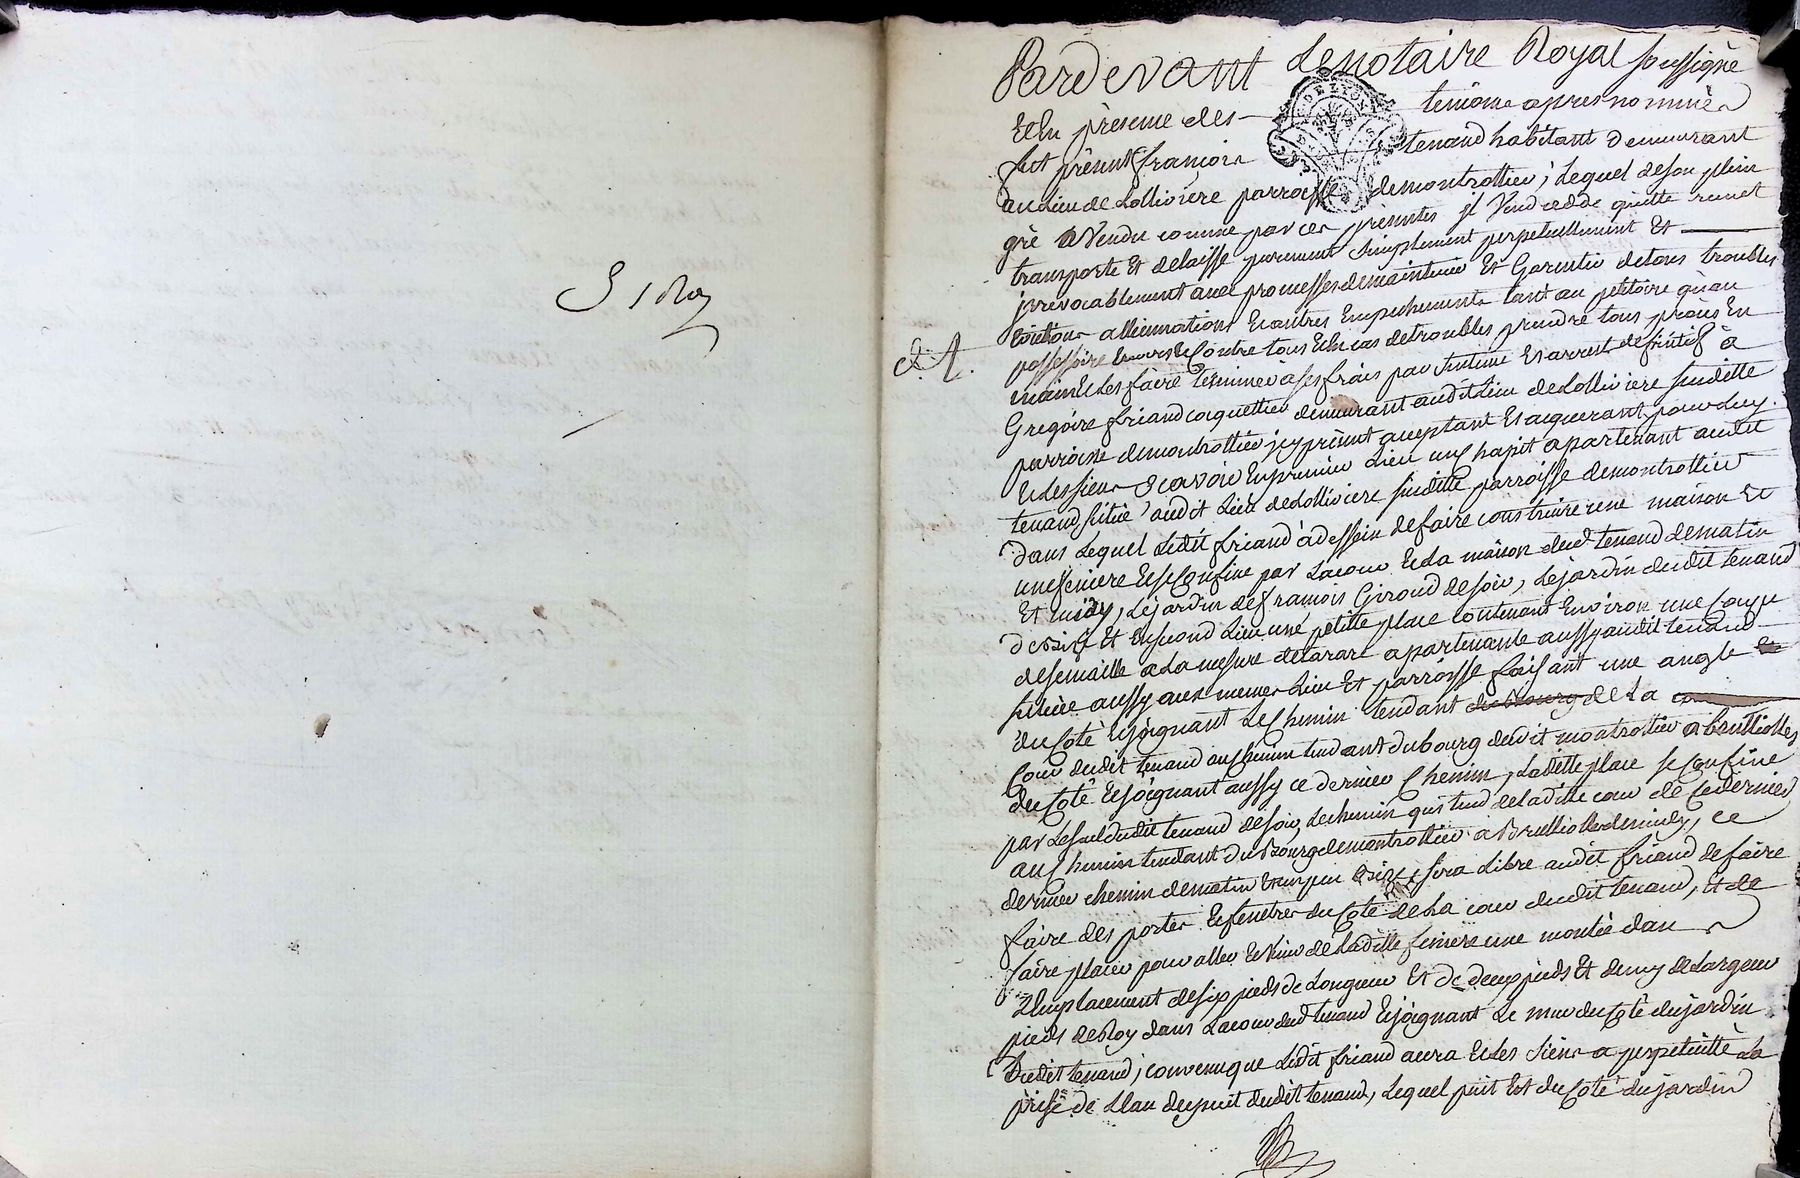 Pardevant Le notaire Royal soussigné
Et En presence des temoins apres nommés
fut présent françois tenaud habitant demeurant
au Lieu de Lolliviere parroisse de montrottier; Lequel de son plein
gré a vendu comme par ces présentes jl Vend cedde quitte remet
transporte Et delaisse purement simplement perpetuellement Et
jrrevocablement avec promesses de maintenir Et Garentir de tous troubles
Evictions allienations Et autres Empechements tant au petitoire qu'au
possessoire Envers & Contre tous Et En cas de troubles prendre tous procès En
main Et Les faire terminer a ses frais par sentence Et arrest definitif à
Gregoire friand coquettier demeurant audit Lieu de Lolliviere susditte
parroisse de montrottier jcy présent acceptant Et acquerant pour Luy
Et Les siens Scavoir En premier Lieu un chapit apartenant audit
tenaud situé audit Lieu de Lolliviere susditte parroisse de montrottier
dans Lequel Ledit friand à dessein de faire construire une maison Et
une feniere Et se Confine par La cour Et La maison dud. tenaud de matin
Et midy, Le jardin de françois Giroud de soir, Le jardin dudit tenaud
de bize Et En second Lieu une petitte place contenant Environ une Coupe
de semaille a La mesure de tarare apartenante aussy audit tenaud
située aussy aux memes Lieu Et parroisse faisant une angle
du Coté Et joignant Le Chemin tendant du Bourg de La
Cour dudit tenaud au chemin tendant du bourg dudit montrottier a brullioles
du Coté Et joignant aussy ce dernier Chemin, Laditte place se Confine
par Le sud dudit tenaud de soir, Le chemin qui tend de Laditte cour de Ce dernier
au Chemin tendant du Bourg de montrottier a Brullioles de midy, ce
dernier chemin de matin Et un peu bize, sera Libre audit friand de faire
faire des portes Et fenetres du Coté de La cour dudit tenaud, Et de
faire placer pour aller Et venir de Laditte feniere une montée dans
L'Emplacement de six pieds de Longueur Et de deux pieds Et demy de Largeur
pieds de Roy dans La cour dud. tenaud Et joignant Le mur du Coté du jardin
dudit tenaud; convenu que Ledit friand aura Et Les siens a perpetuitté La
prise de L'eau du puit dudit tenaud, Lequel puit Est du Coté du jardin